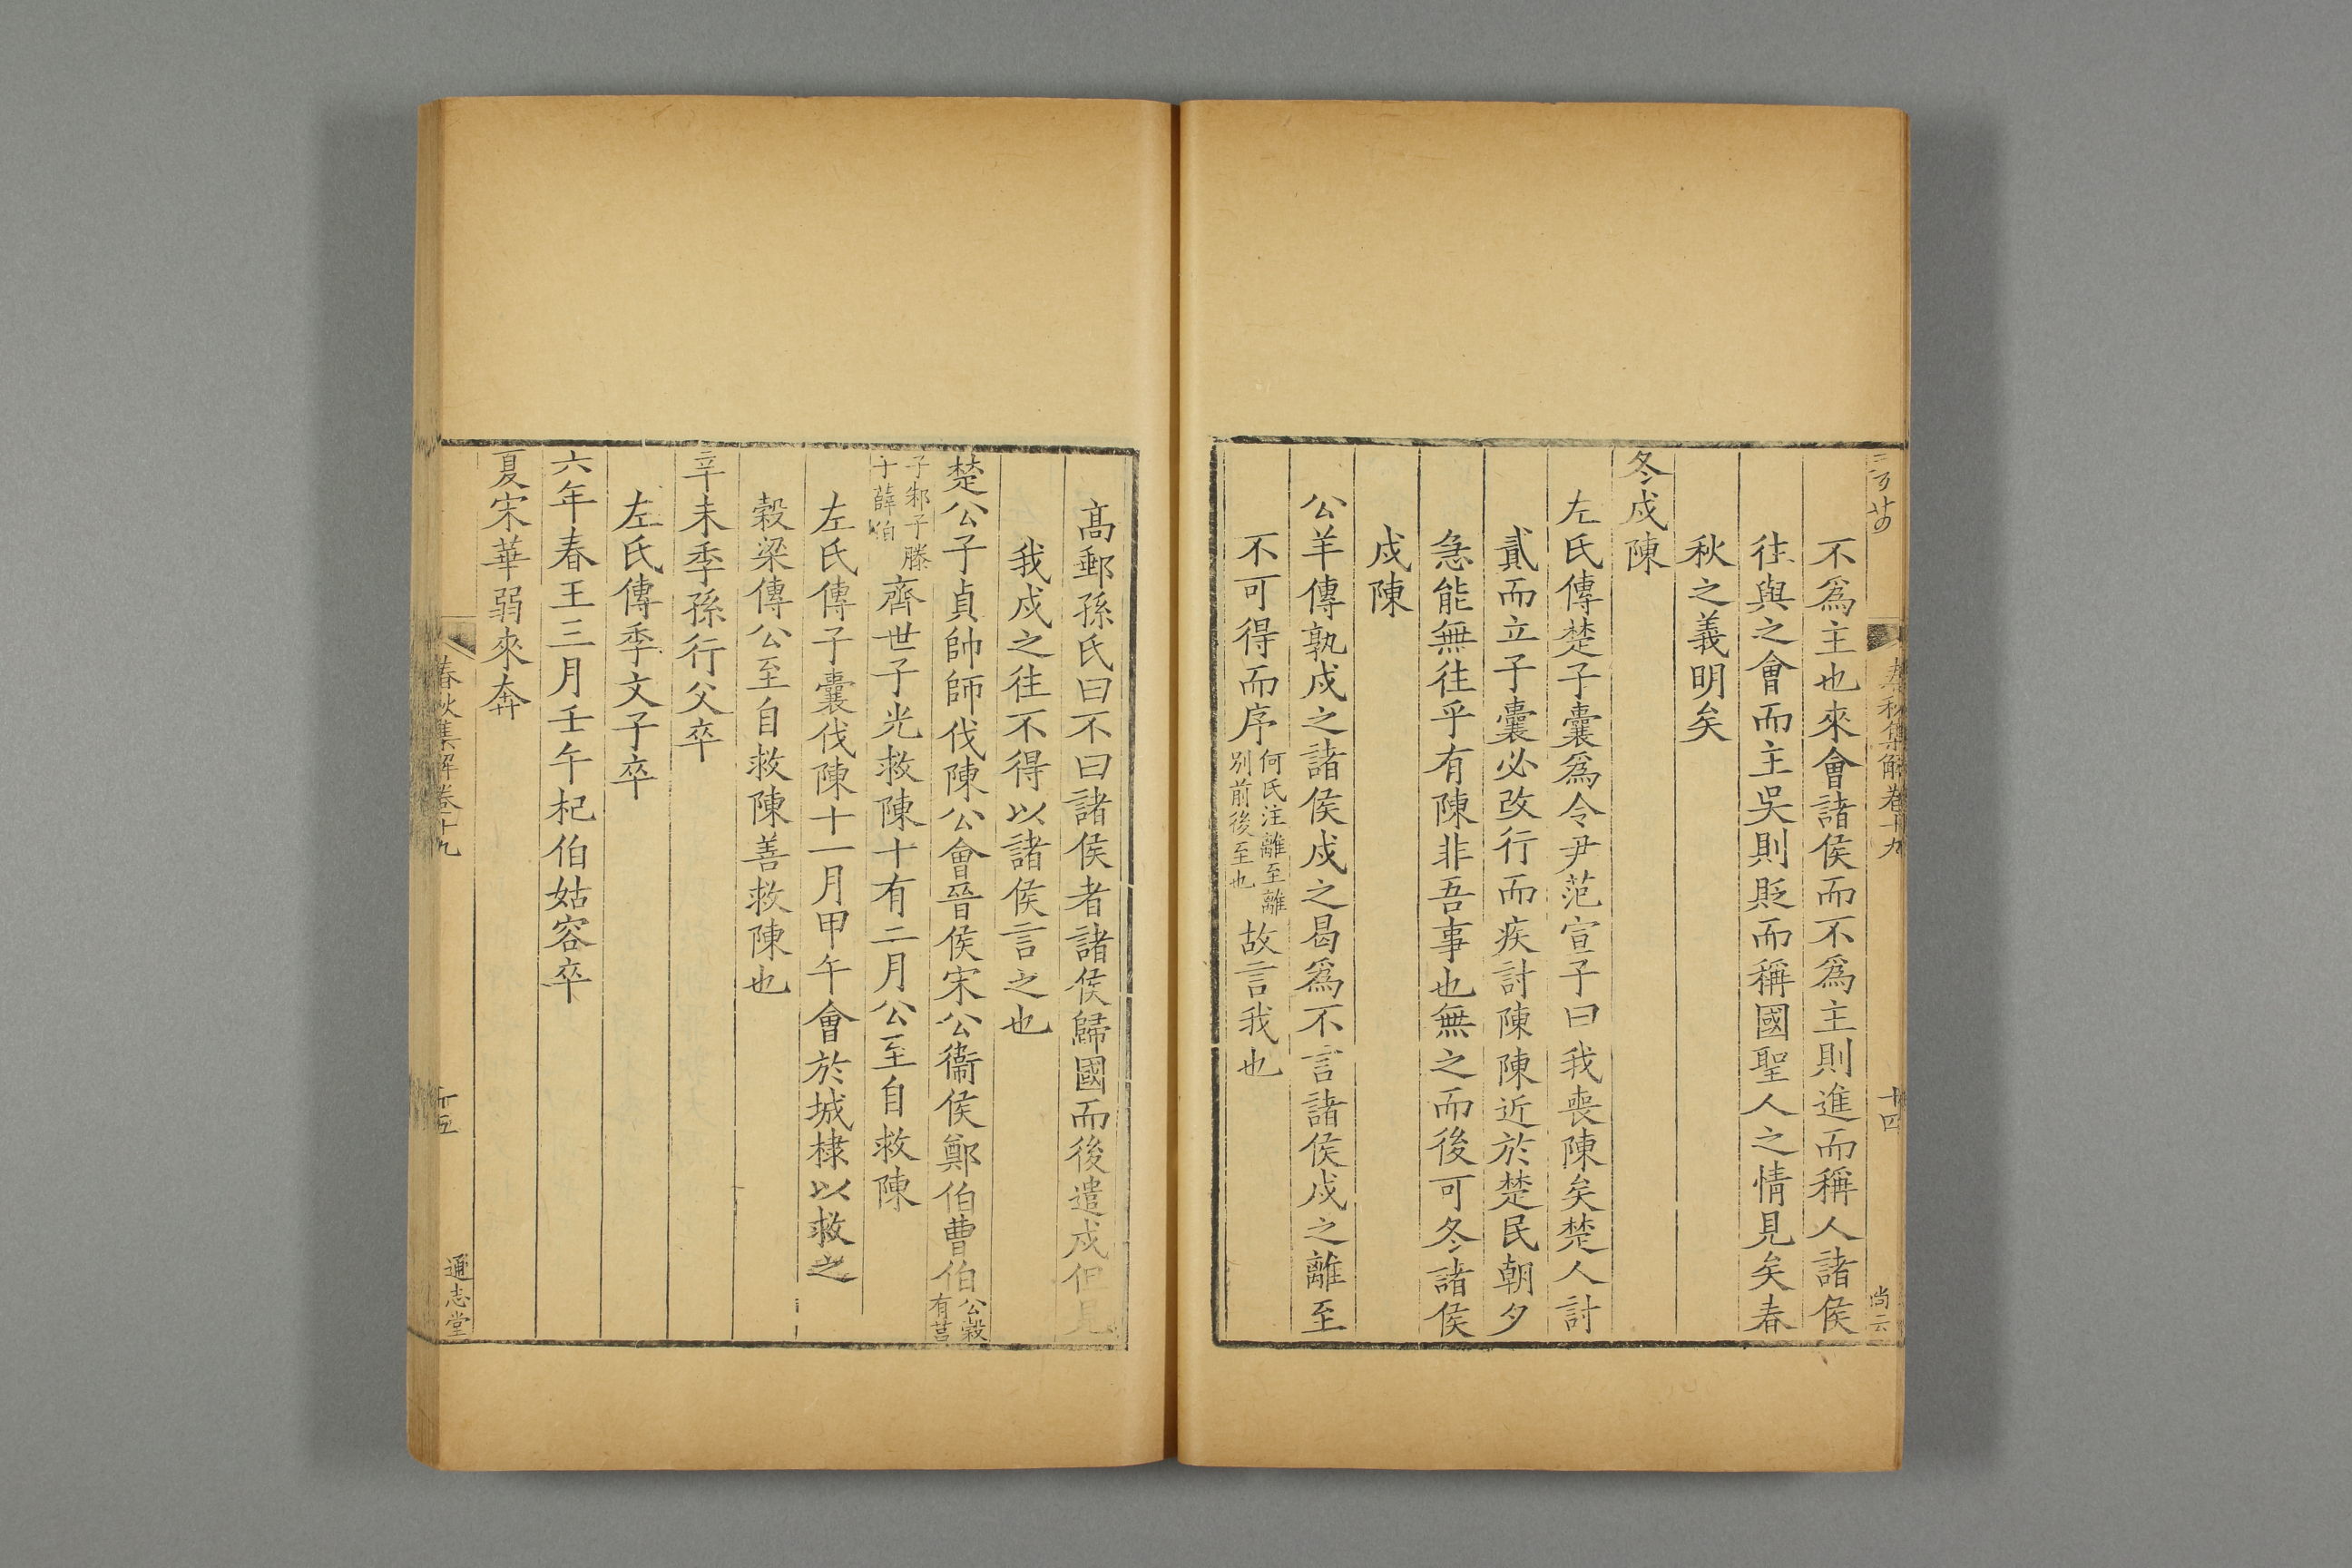 春秋集解卷十九
十四
不爲主也來會諸侯而不爲主則進而稱人諸侯
往與之會而主吳則貶而稱國聖人之情見矣春
秋之義明矣
冬戍陳
左氏傳楚子囊爲令尹范宣子曰我喪陳矣楚人討
貳而立子囊必改行而疾討陳陳近於楚民朝夕
急能無往乎有陳非吾事也無之而後可冬諸侯
戍陳
公羊傳孰戍之諸侯戍之曷爲不言諸侯戍之離至
不可得而序何氏注離至離別前後至也故言我也
高郵孫氏曰不曰諸侯者諸侯歸國而後遣戍但見
我戍之往不得以諸侯言之也
楚公子貞帥師伐陳公會晉侯宋公衞侯鄭伯曹伯公穀有莒
子邾子滕子薛伯齊世子光救陳十有二月公至自救陳
左氏傳子囊伐陳十一月甲午會於城棣以救之
穀梁傳公至自救陳善救陳也
辛未季孫行父卒
左氏傳季文子卒
六年春王三月壬午杞伯姑容卒
夏宋華弱來奔
春秋集解卷十九
十五
通志堂